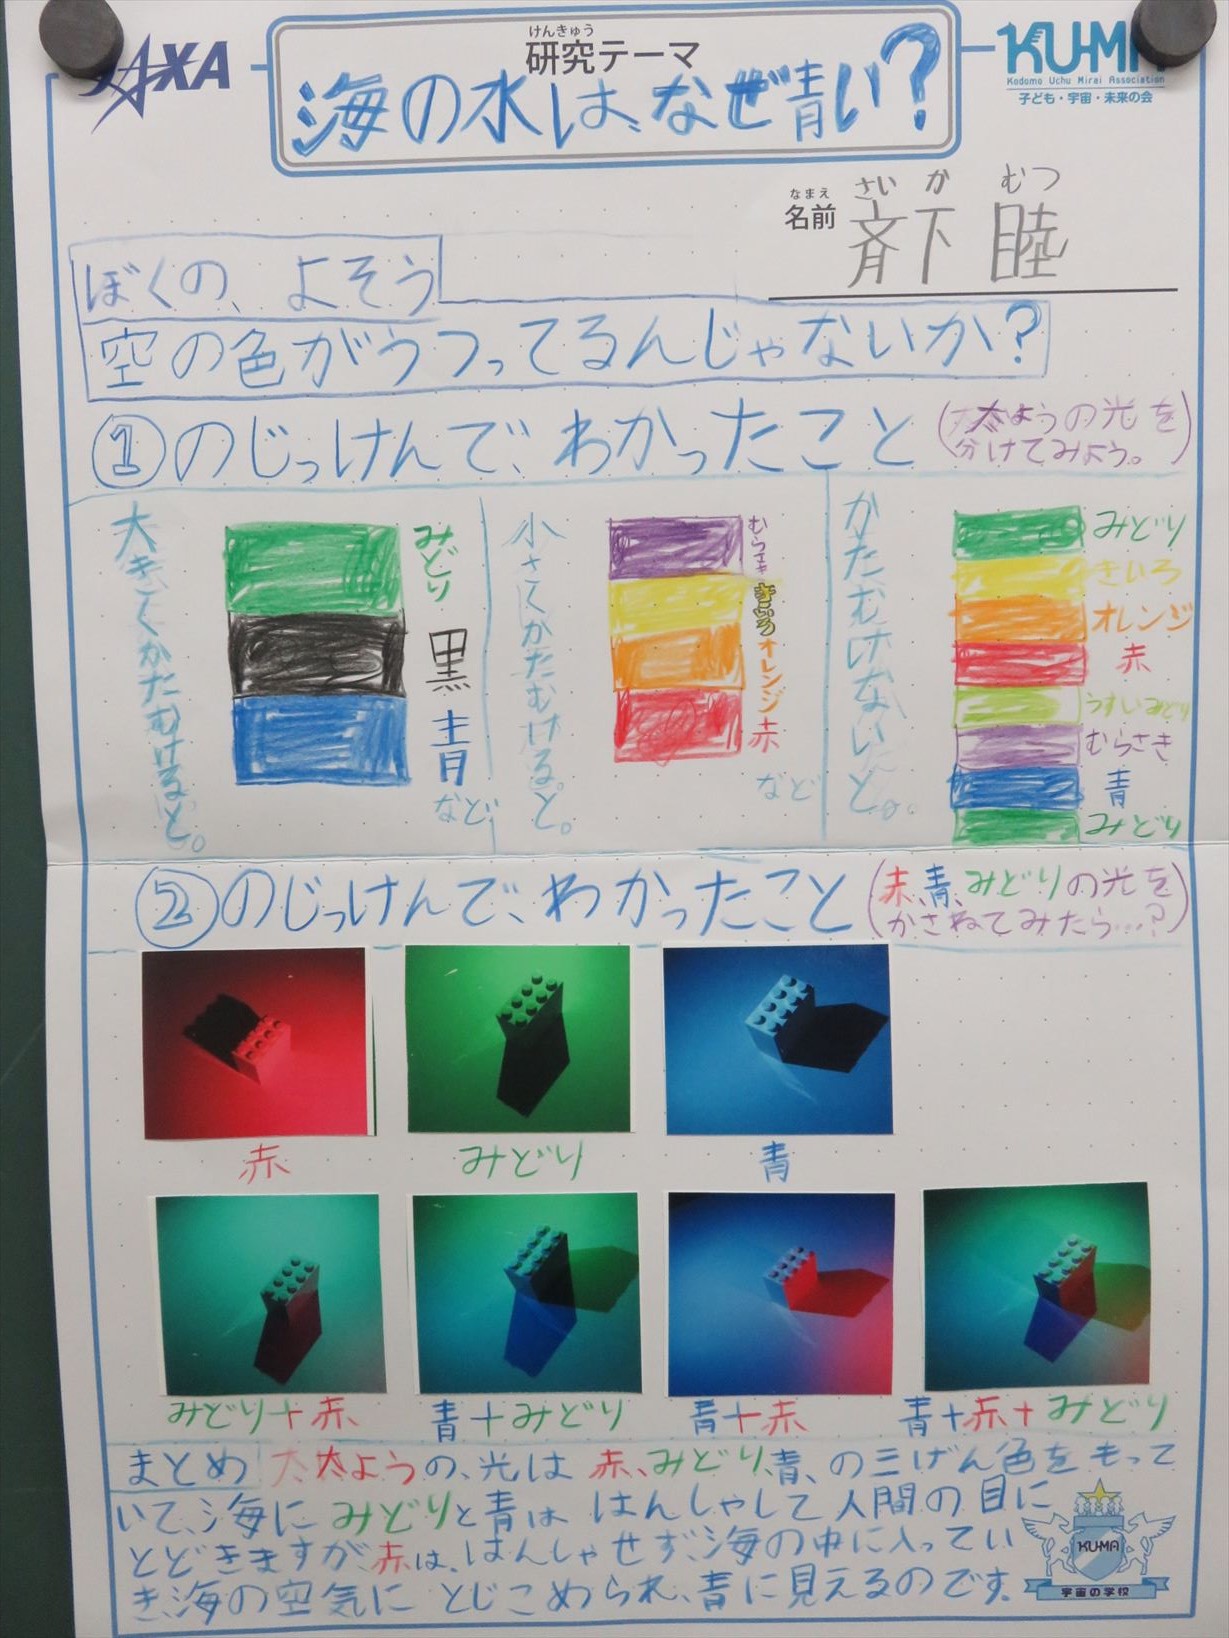 けんきゅう
研究テーマ
海の水は、なぜ青い?
KUMA
Kodomo Uchu Mirai Association
子ども・宇宙・未来の会
なまえ
名前
さいか むつ
斉下 睦
ぼくの、よそう
空の色がうつってるんじゃないか?
①のじっけんで、わかったこと
(太ようの光を
分けてみよう。)
大きくかたむけると。
みどり
黒
青
など
小さくかたむけると。
むらさき
きいろ
オレンジ
赤
など
かたむけないと。
みどり
きいろ
オレンジ
赤
うすいみどり
むらさき
青
みどり
②のじっけんで、わかったこと
(赤、青、みどりの光を
かさねてみたら…?)
赤
みどり
青
みどり+赤
青+みどり
青+赤
青+赤+みどり
まとめ 太ようの、光は 赤、みどり、青、の三げん色をもって
いて、海に みどりと青は はんしゃして人間の目に
とどきますが、赤は、はんしゃせず、海の中に入ってい
き、海の空気に とじこめられ、青に見えるのです。
KUMA
宇宙の学校